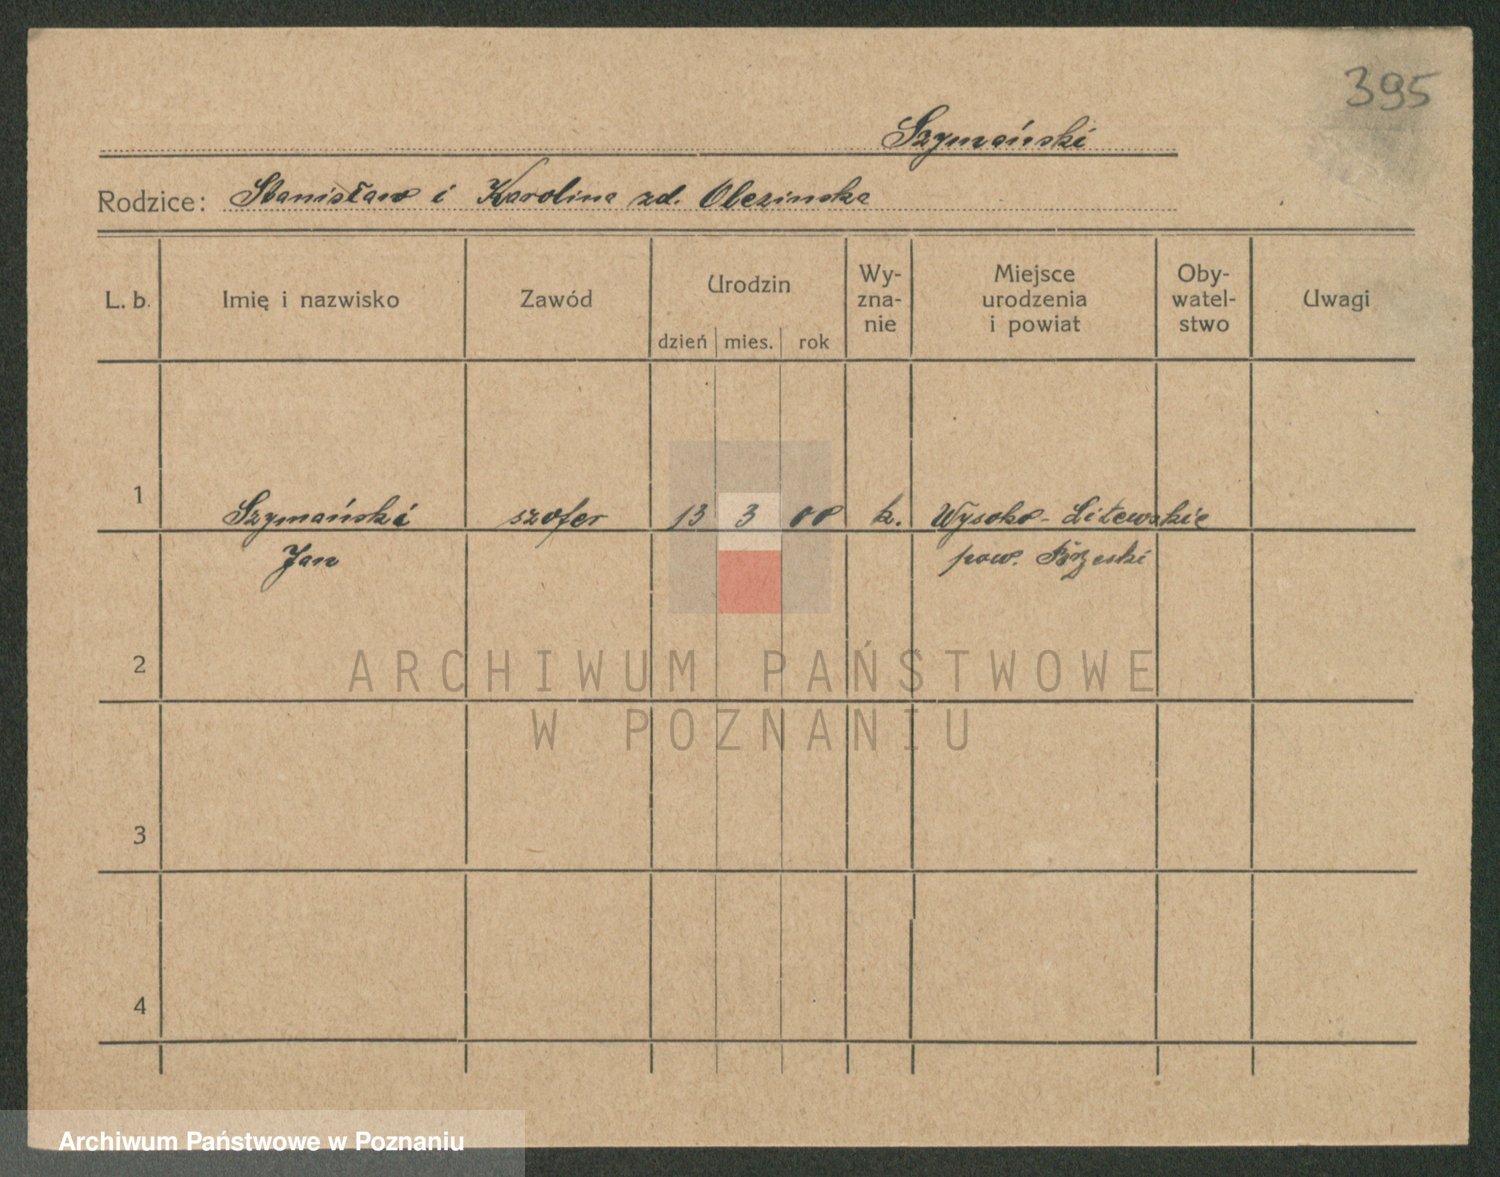 395
Szymański
Rodzice: Stanisław i Karolina zd. Olezinska
L. b. Imię i nazwisko Zawód Urodzin dzień mies. rok Wy-zna-nie Miejsce urodzenia i powiat Oby-watel-stwo Uwagi
1 Szymański szofer 13 3 00 k. Wysoko-Litewskie
Jan pow. Brzeski
2
ARCHIWUM PAŃSTWOWE
W POZNANIU
3
4
Archiwum Państwowe w Poznaniu